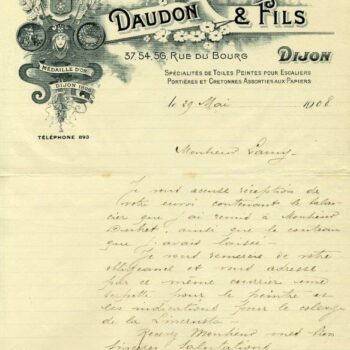 DAUDON & FILS
37, 54, 56, RUE DU BOURG
DIJON
SPÉCIALITÉS DE TOILES PEINTES POUR ESCALIERS
PORTIÈRES ET CRETONNES ASSORTIES AUX PAPIERS
MÉDAILLE D'OR
DIJON
TÉLÉPHONE 893
le 29 Mai 1908
Monsieur
Je vous accuse réception de
votre envoi contenant le
que j'ai remis à Monsieur
ainsi que le couteau
que j'avais laissé
Je vous remercie de votre
obligeance et vous adresse
par ce même courrier une
pour le peintre et
les indications pour le collage
de la
Recevez Monsieur mes bien
sincères salutations